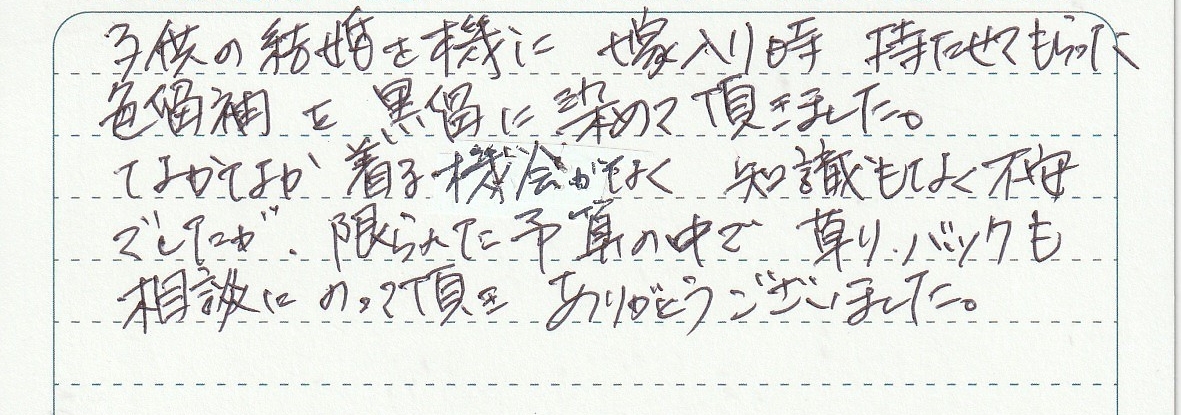 子供の結婚を機に 嫁入り時 持たせてもらった
色留袖を 黒留に染めて頂きました。
なかなか 着る機会がなく 知識もなく不安
でしたが、限られた予算の中で 草り、バックも
相談にのって頂き ありがとうございました。